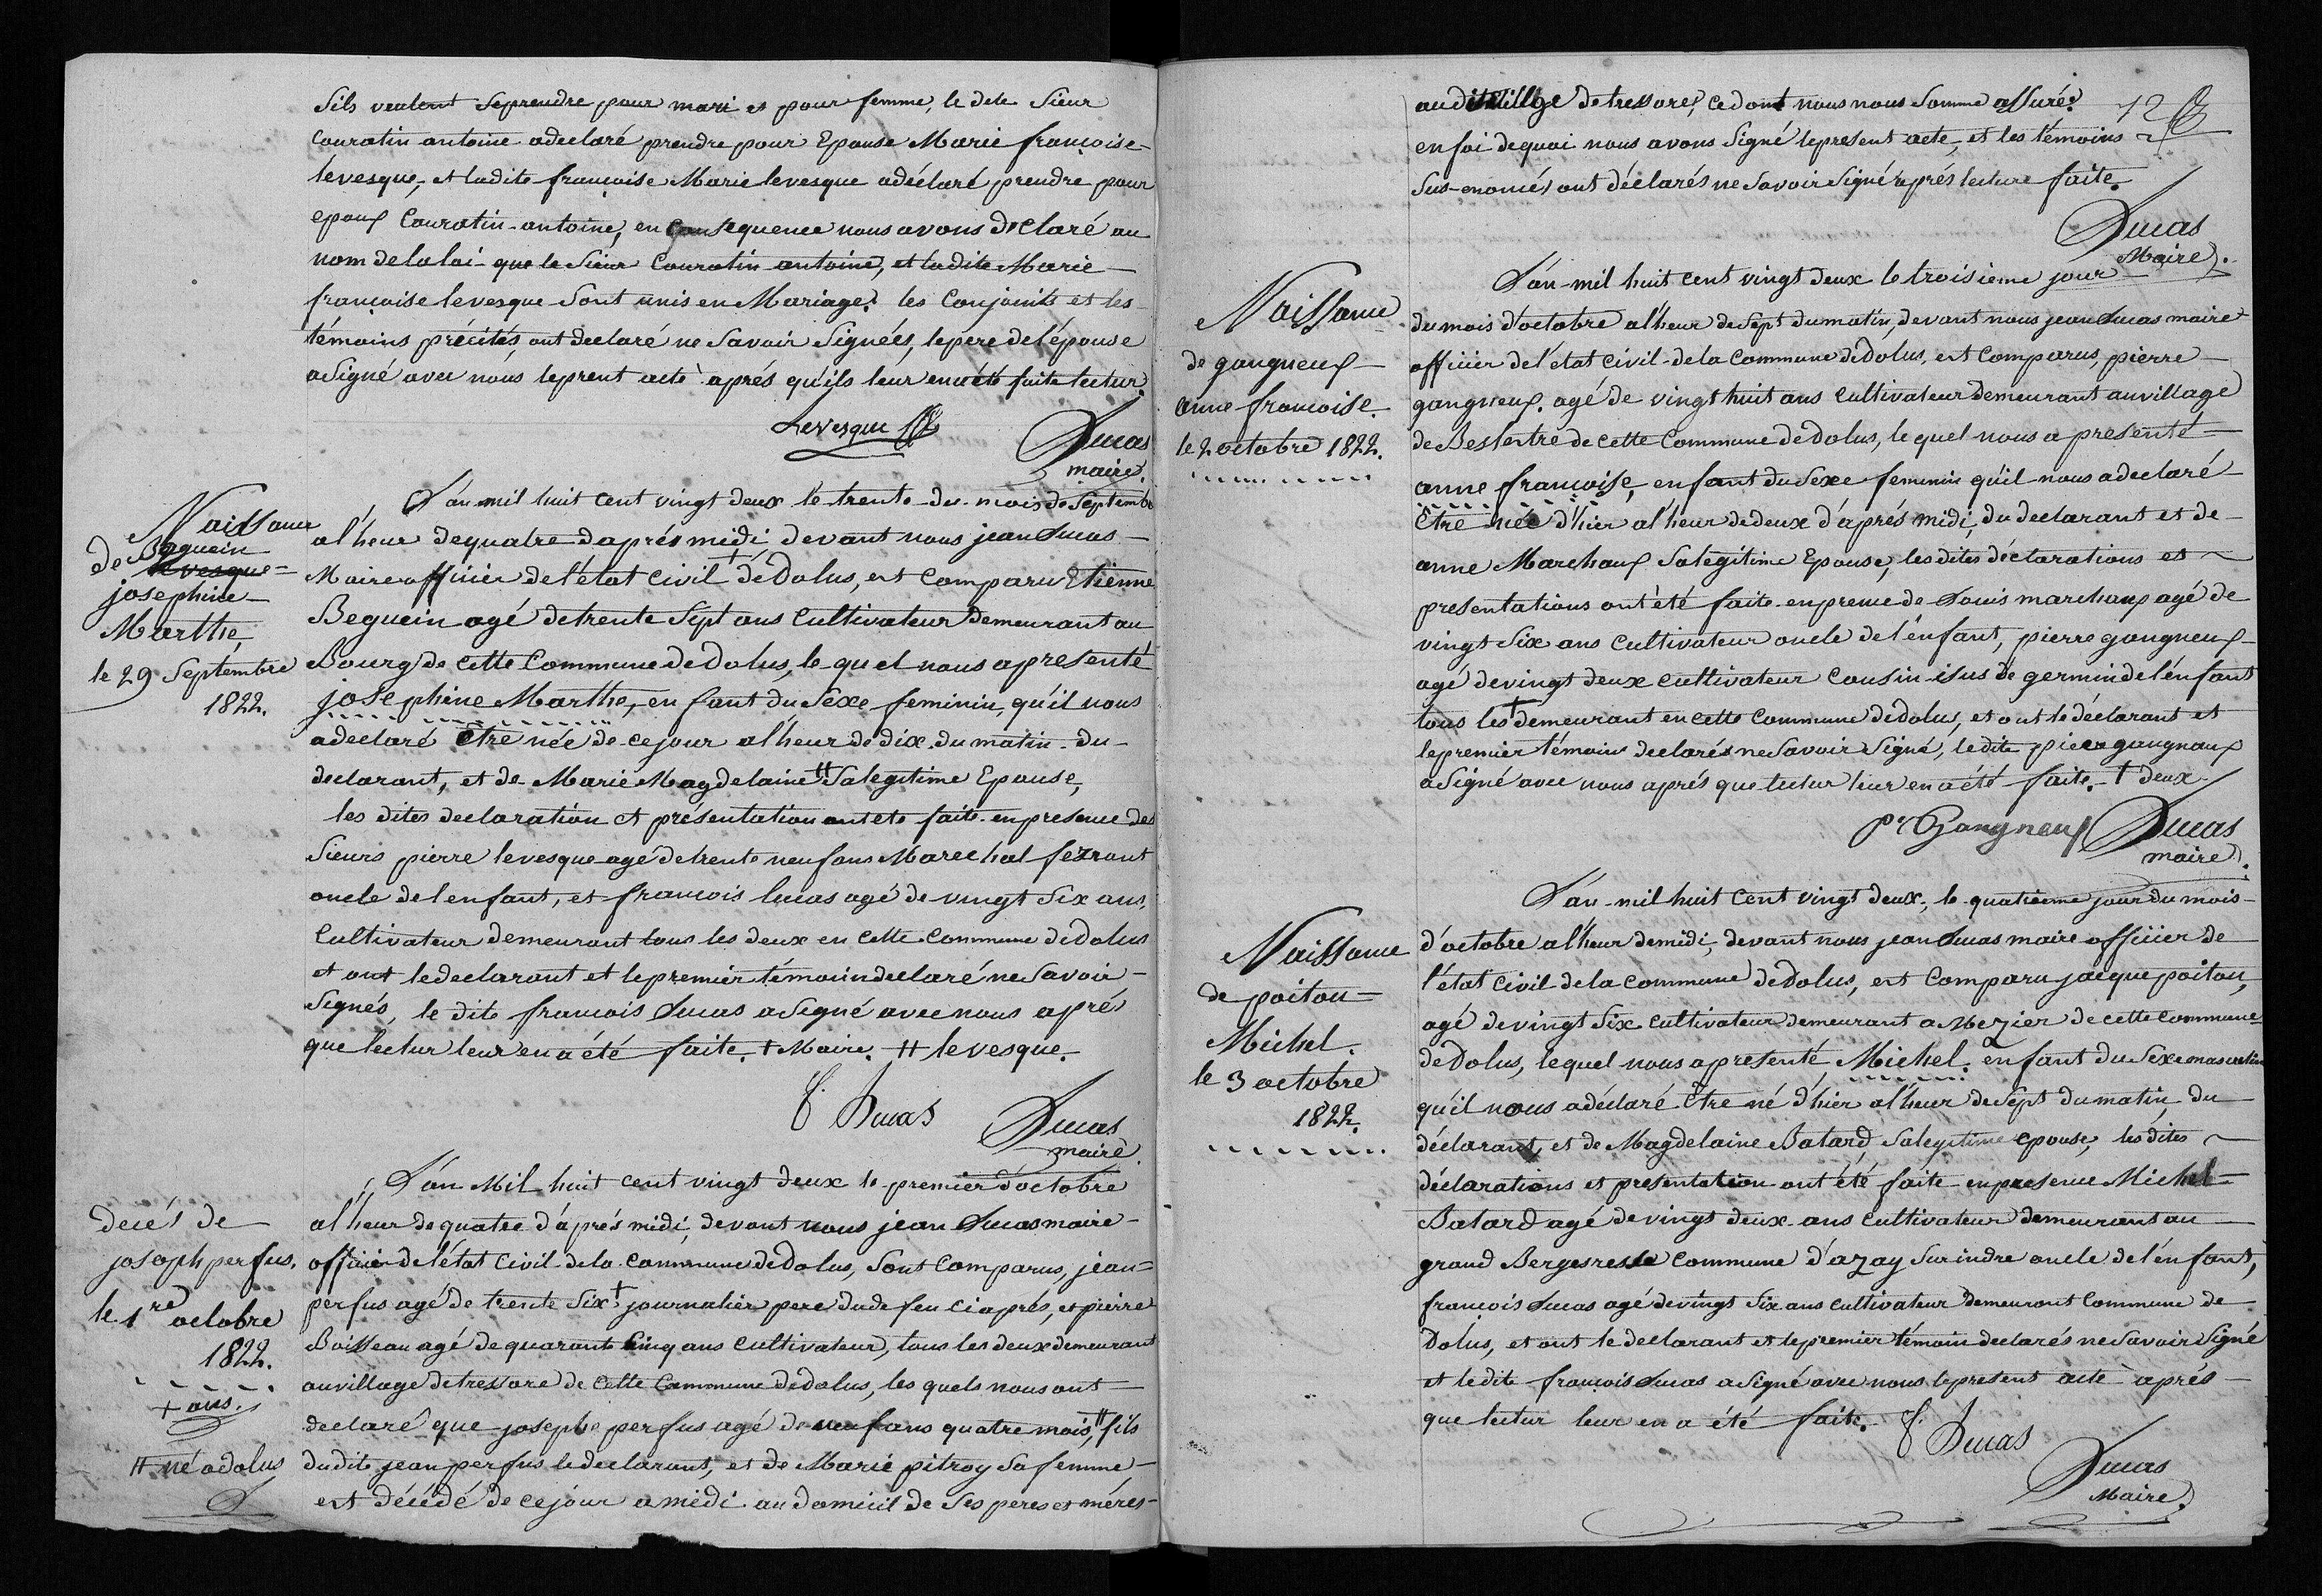 sils veulent seprendre pour mari et pour femme, le dite sieur
couratin antoine adeclaré prendre pour Epouse Marie françoise-
levesque, et ladite françoise Marie levesque adéclaré prendre pour
epoux Couratin-antoine, en Consequence nous avons declaré au
nom delaloi que le sieur Couratin antoine, et ladite Marie
françoise levesque sont unis en Mariage. les Conjoints et les
témoins précités, ont declaré ne savoir signées, lepere del'épouse
asigné avec nous leprent acte aprés qu'ils leur ena été faite lectur.
Levesque
Lucas
maire.
Naissance
de Beguein
levesque
josephine
Marthe
le 29 Septembre
1822.
L'an mil huit cent vingt deux le trente du mois de septembre
al'heur dequatre daprés midi devant nous jean Lucas
Maire officier de l'état civil + de Dolus, est comparu Etienne
Beguein agé detrente sept ans cultivateur demeurant au
Bourg de cette Commune de Dolus, le quel nous apresenté
josephine Marthe, enfant du sexe feminin, qu'il nous
adeclaré être née de cejour al'heur de dix du matin du
declarant, et de Marie Magdelaine # salegitime Epouse,
les dites declaration et présentation ont ete faite enpresence des
sieurs pierre levesque agé detrente neuf ans Marechal ferrant
oncle de l'enfant, et francois lucas agé de vingt six ans,
Cultivateur demeurant tous les deux en cette commune dedolus
et ont ledeclarant et lepremier témoin declaré ne savoir
signés, le dite francois Lucas asigné avec nous aprés
que lectur leur en a été faite. + Maire. # levesque.
f. Lucas
Lucas
maire.
decés de
joseph perfus.
le 1re octobre
1822.
+ ans.
# né adolus
L'an Mil huit cent vingt deux le premier d'octobre
al'heur de quatre d'aprés midi, devant nous jean Lucas maire
officier de l'état Civil de la commune dedolus, sont comparus, jean
perfus agé de trente six + journalier pere dudefeu ci aprés, et pierre
Boisseau agé de quarante Cinq ans cultivateur, tous les deux demeurant
auvillage detressore de cette Commune dedolus, les quels nous ont
declaré que josephe perfus agé de neuf ans quatre mois, # fils
dudite jean perfus ledeclarant, et de Marie pitroy safemme
est décédé de cejour amidi au domicil de ses peres et méres
audit village detressore, cedont nous nous somme assuré.
72
enfoi dequoi nous avons signé lepresent acte, et les témoins
sus-enomés ont déclarés ne savoir signé aprés lecture faite.
Lucas
Maire.
Naissance
de gangneux
anne francoise.
le 2 octobre 1822.
L'an mil huit cent vingt deux le troisieme jour
dumois d'octobre al'heur desept dumatin, devant nous jean Lucas maire
officier de l'état civil de la Commune de Dolus, est comparus, pierre
gangneux. agé de vingt huit ans cultivateur demeurant auvillage
de Beslertre de cette Commune de Dolus, le quel nous a presenté
anne francoise, enfant du sexe feminin qu'il nous adeclaré
être née d'hier al'heur dedeux d'aprés midi, du declarant et de
anne Marchaux salegitime Epouse, les dites déclarations et
presentations ont été faite enpresence de Louis marchaux agé de
vingt six ans cultivateur oncle de l'énfant, pierre gangneux
agé devingt deux cultivateur cousin isus de germin del'énfant
tous les + demeurant en cette commune dedolus, et ont le déclarant et
lepremier témoin declarés ne savoir signé, ledite piere gangnaux
asigné avec nous aprés que lectur leur en a été faite. + deux
Pr Gangneux
Lucas
maire.
Naissance
de poitou
Michel.
le 3 octobre
1822.
L'an mil huit cent vingt deux, le quatrieme jour du mois
d'octobre al'heur demidi, devant nous jean Lucas maire officier de
l'état civil de la commune de Dolus, est comparu jacque poitou,
agé devingt six cultivateur demeurant a Mezier de cette commune
de Dolus, lequel nous apresenté Michel. enfant du sexe masculin
qu'il nous adéclaré être né d'hier al'heur de sept du matin, du
déclarant, et de Magdelaine Batard, salegitime epouse, les dites
déclarations et presentation ont été faite enpresence Michel
Batard agé devingt deux ans cultivateur demeurant au
grand Bergeresse commune d'azay sur indre oncle de l'énfant,
francois Lucas agé devingt six ans cultivateur demeurant commune de
Dolus, et ont le declarant et lepremier témoin declarés ne savoir signé
et ledite francois Lucas asigné avec nous lepresent acte aprés
que lectur leur en a été faite.
f. Lucas
Lucas
Maire.